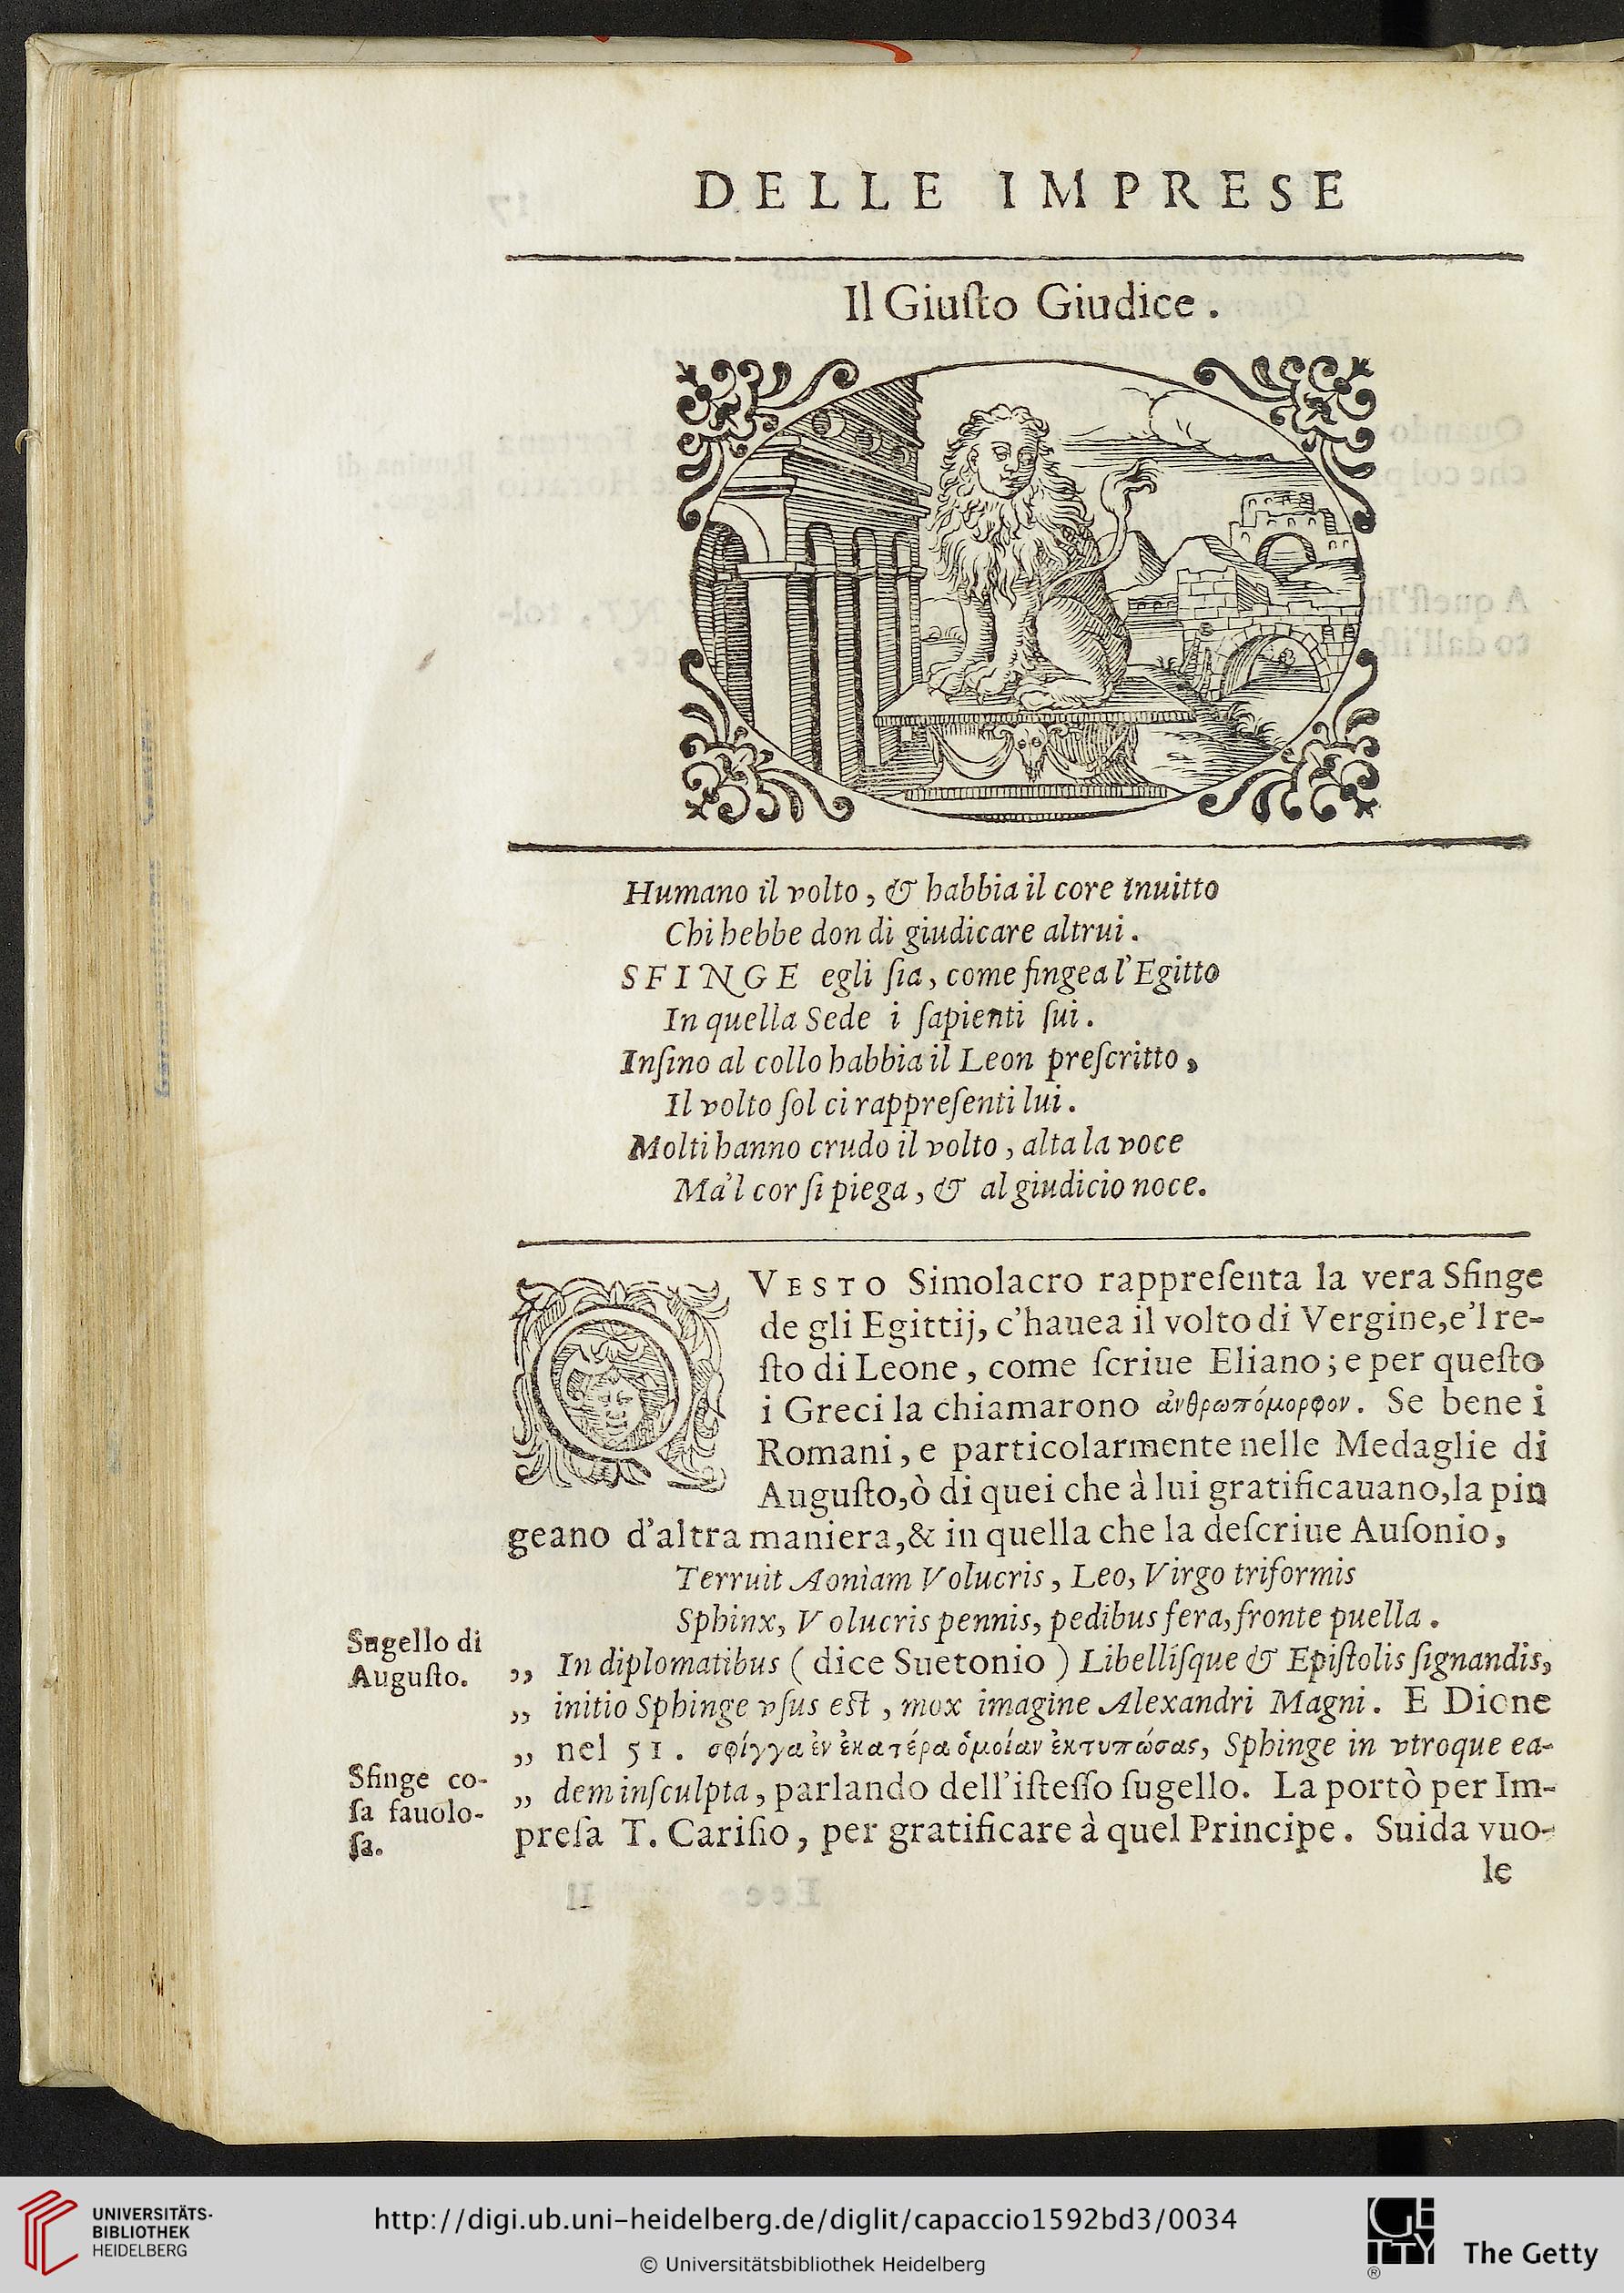 DELLE IMPRESE
Il Giuſto Giudice.
Humano il volto, & habbia il core inuitto
Chi hebbe don di giudicare altrui.
SFINGE egli ſia, come fingea l'Egitto
In quella Sede i ſapienti ſui.
Inſino al collo habbia il Leon preſcritto,
Il volto ſol ci rappreſenti lui.
Molti hanno crudo il volto, alta la voce
Ma'l cor ſi piega, & al giudicio noce.
QVESTO Simolacro rappreſenta la vera Sfinge
de gli Egittij, c'hauea il volto di Vergine, e'l re-
ſto di Leone, come ſcriue Eliano; e per queſto
i Greci la chiamarono ἀνθρωπόμορφον. Se bene i
Romani, e particolarmente nelle Medaglie di
Auguſto, ò di quei che à lui gratificauano, la pin
geano d'altra maniera, & in quella che la deſcriue Auſonio,
Terruit Aoniam Volucris, Leo, Virgo triformis
Sphinx, Volucris pennis, pedibus fera, fronte puella.
Sugello di
Auguſto.
„ In diplomatibus ( dice Suetonio ) Libelliſque & Epiſtolis ſignandis,
„ initio Sphinge vſus eſt, mox imagine Alexandri Magni. E Dione
„ nel 51. σφίγγα ἐν ἑκατέρα ὁμοίαν ἐκτυπώσας, Sphinge in vtroque ea-
Sfinge co-
ſa fauolo-
ſa.
„ dem inſculpta, parlando dell'iſteſſo ſugello. La portò per Im-
preſa T. Cariſio, per gratificare à quel Principe. Suida vuo-
le
UNIVERSITÄTS-
BIBLIOTHEK
HEIDELBERG
http://digi.ub.uni-heidelberg.de/diglit/capaccio1592bd3/0034
© Universitätsbibliothek Heidelberg
GETTY
®
The Getty